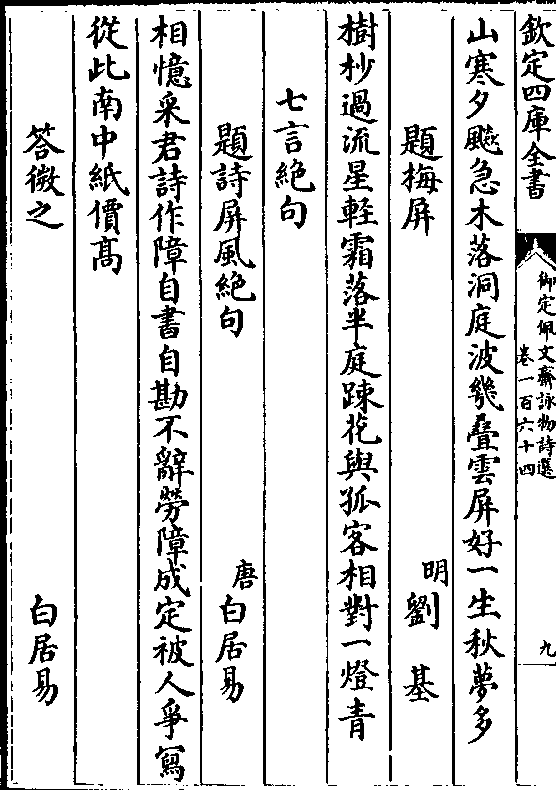 欽定四庫全書
御定佩文齋詠物詩選
卷一百六十四
九
山寒夕飈急木落洞庭波幾疊雲屏好一生秋夢多
題梅屏
明劉基
樹杪過流星輕霜落半庭踈花與孤客相對一燈青
七言絶句
題詩屏風絶句
唐白居易
相憶采君詩作障自書自勘不辭勞障成定被人爭寫
從此南中紙價髙
答微之
白居易